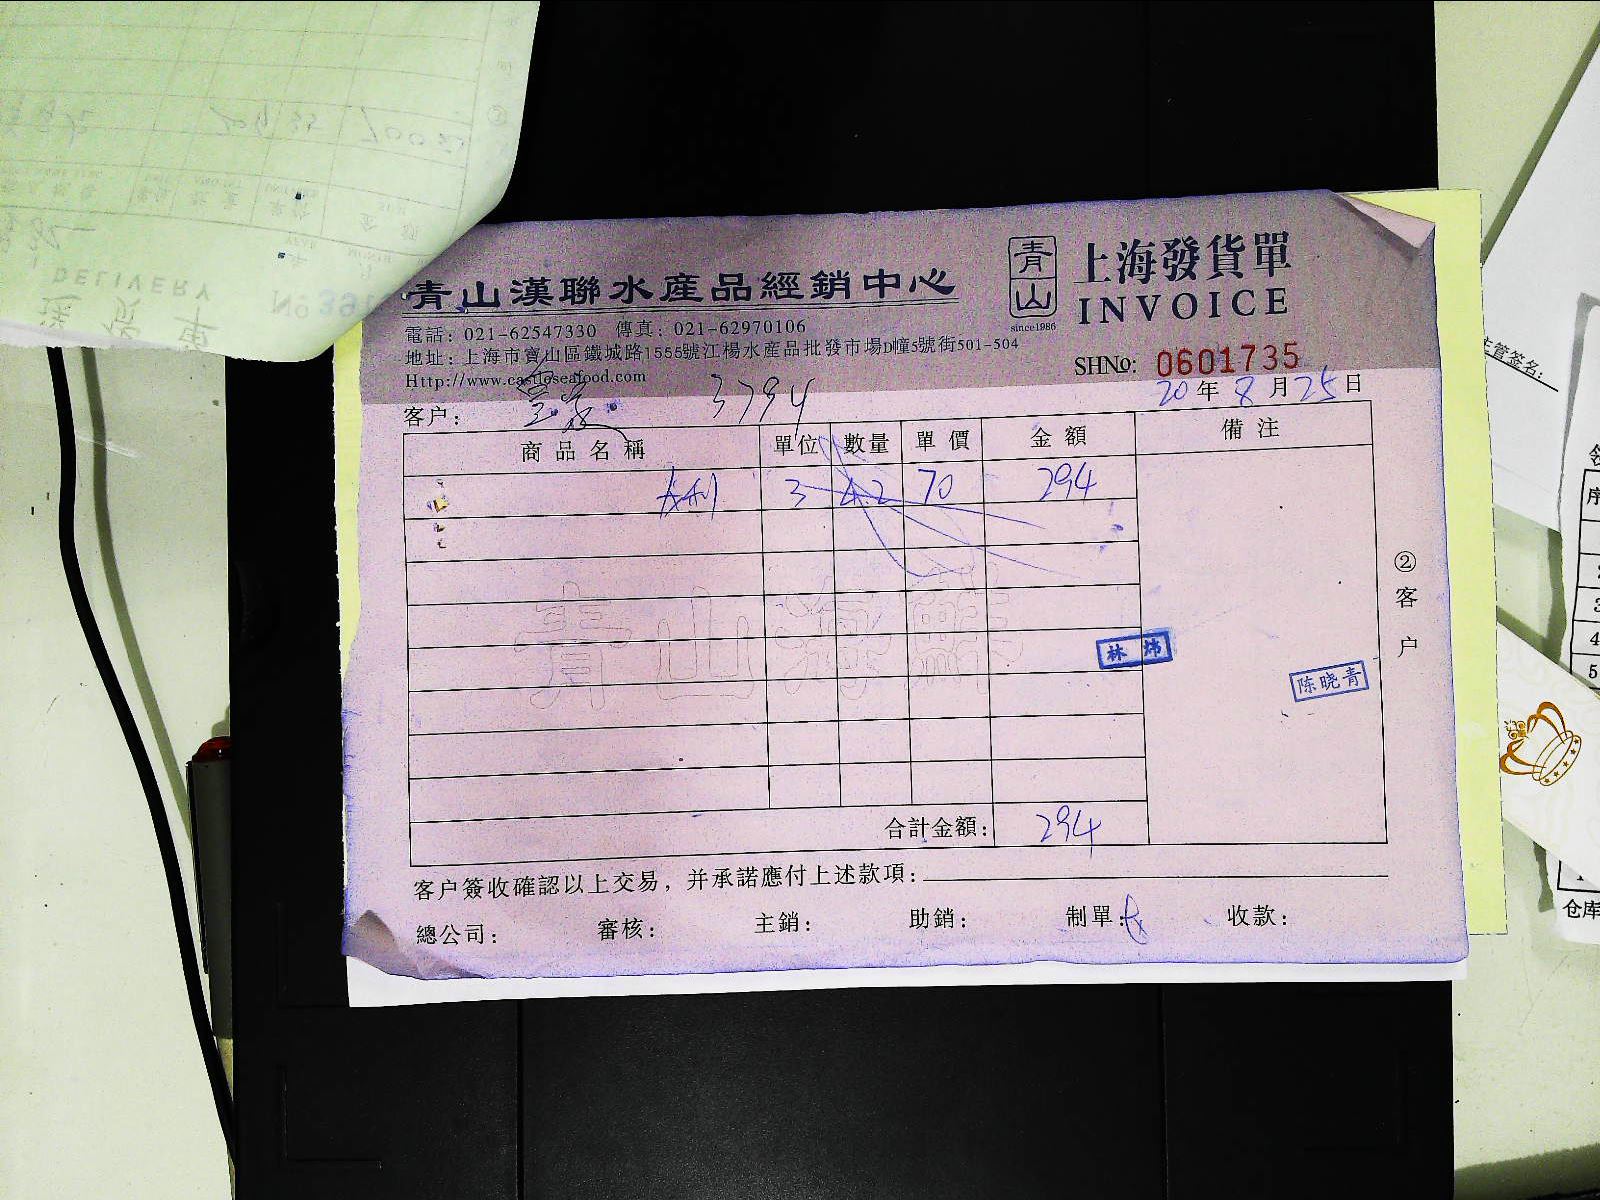 青山漢聯水產品經銷中心
青山
since1986
上海發貨單
INVOICE
電話: 021-62547330 傳真: 021-62970106
地址: 上海市寶山區鐵城路1555號江楊水產品批發市場D幢5號街501-504
Http://www.castloseafood.com
SHNo: 0601735
客户: 3794
20年8月25日
商品名稱 單位 數量 單價 金額 備注
3 4.2 70 294
青山漢聯
林炜
陈晓青
②客户
合計金額: 294
客户簽收確認以上交易,并承諾應付上述款項:
總公司: 審核: 主銷: 助銷: 制單: 收款:
DELIVERY
送貨單
主管签名:
仓库